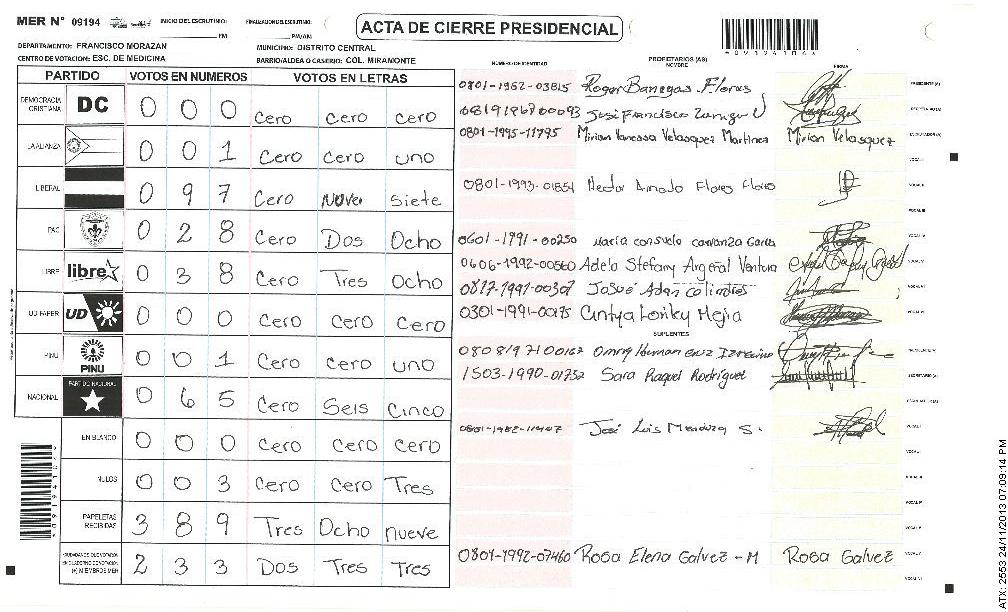 MER N° 09194 INICIO DEL ESCRUTINIO: PM FINALIZACION DEL ESCRUTINIO: PM/AM
ACTA DE CIERRE PRESIDENCIAL
DEPARTAMENTO: FRANCISCO MORAZAN MUNICIPIO: DISTRITO CENTRAL
CENTRO DE VOTACION: ESC. DE MEDICINA BARRIO/ALDEA O CASERIO: COL. MIRAMONTE
PARTIDO VOTOS EN NUMEROS VOTOS EN LETRAS
DEMOCRACIA CRISTIANA DC 0 0 0 Cero cero cero
LA ALIANZA 0 0 1 Cero Cero uno
LIBERAL 0 9 7 Cero Siete
PAC 0 2 8 Cero Dos Ocho
LIBRE libre 0 3 8 Cero Tres Ocho
UD-FAPER UD 0 0 0 Cero Cero Cero
PINU PINU 0 0 1 Cero cero uno
NACIONAL PARTIDO NACIONAL 0 6 5 Cero Seis Cinco
EN BLANCO 0 0 0 Cero Cero Cero
NULOS 0 0 3 Cero Cero Tres
PAPELETAS RECIBIDAS 3 8 9 Tres Ocho nueve
2 3 3 Dos Tres Tres
NUMERO DE IDENTIDAD PROPIETARIOS (AS) NOMBRE FIRMA
0801-1962-03815 Roger Banegas Flores PRESIDENTE (A)
Jose Francisco SECRETARIO (A)
0801-1995-11795 Mirian Vanessa Velasquez Martinez Mirian Velasquez ESCRUTADOR (A)
0801-1993-01854 Hector Amado Flores
0601-1991-00250 Maria consuelo carranza Garcia
0606-1992-00560 Adela Stefany Argeñal Ventura
0817-1991-00307 Josué Adan Colindres
0301-1991-00175 Cintya Loriley Mejia
SUPLENTES
0808197100162 Omry
1503-1990-01752 Sara Raquel Rodriguez SECRETARIO (A)
José Luis Mendoza S.
0801-1992-07460 Rosa Elena Galvez - M Rosa Galvez
ATX: 2553 24/11/2013 07:09:14 PM